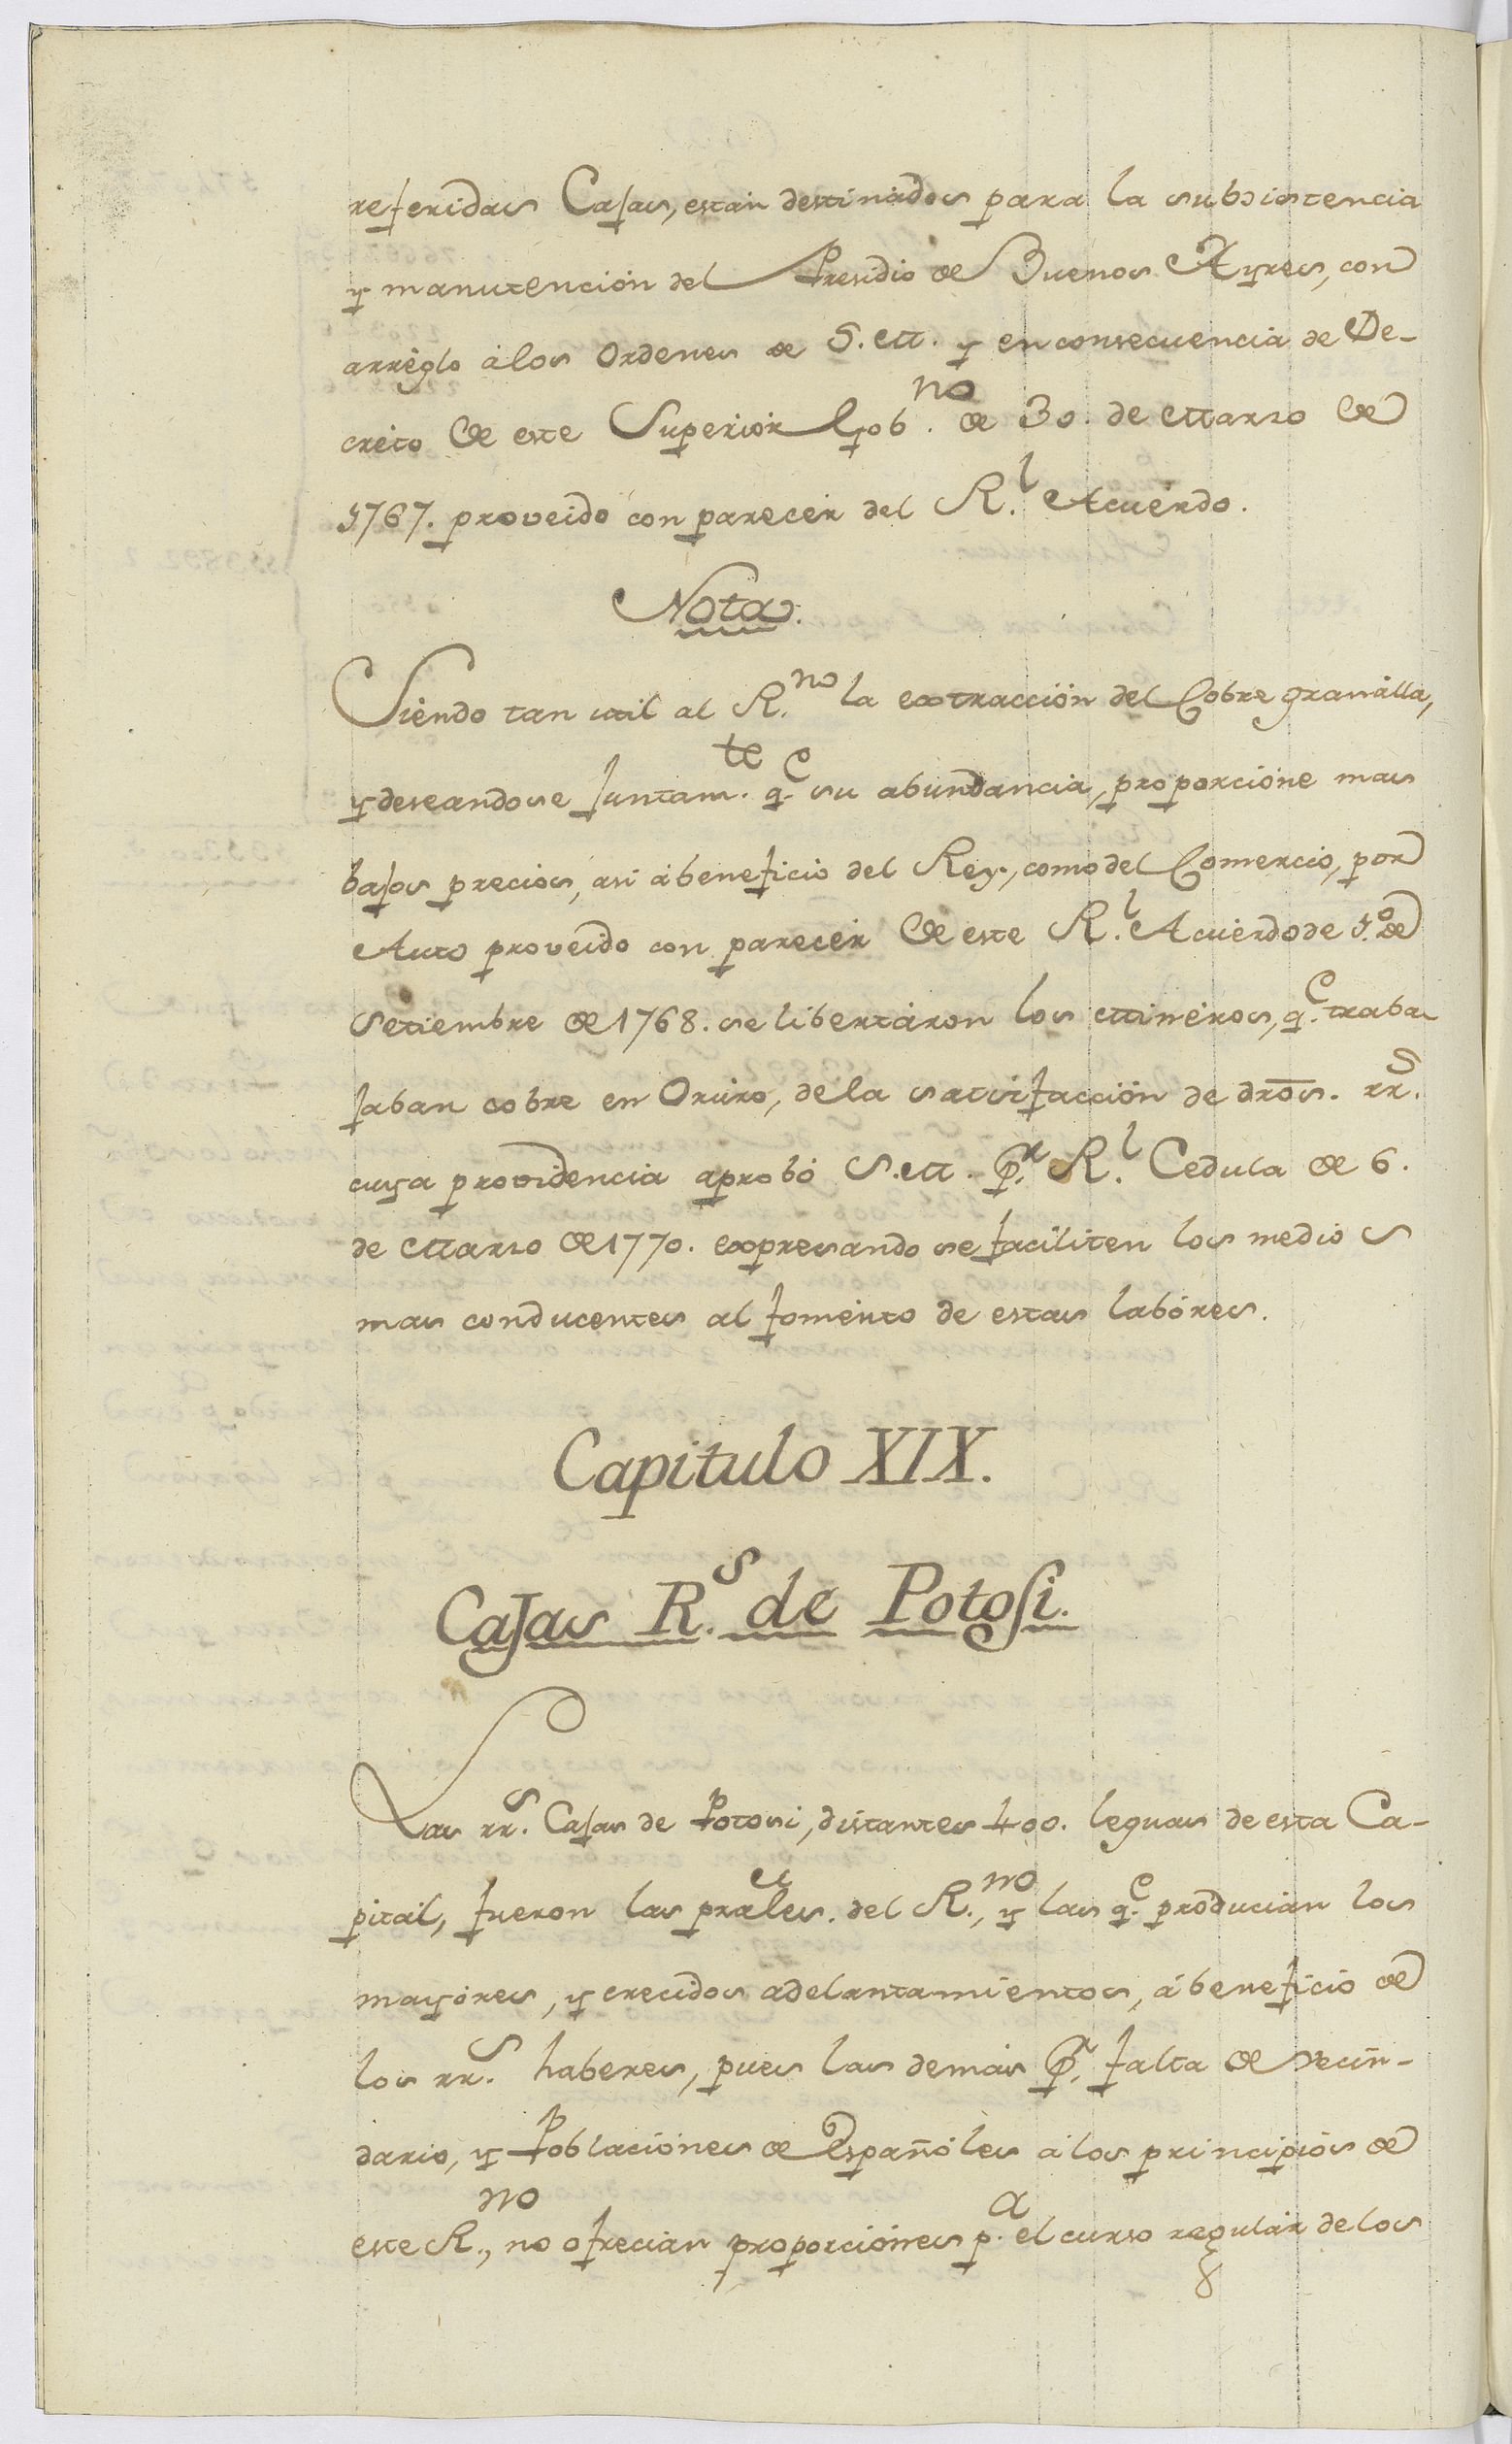 referidas Cajas, están destinados para la subsistencia
y manutención del Presidio de Buenos Ayres, con
arréglo á los Ordenes de S. M. y en consecuencia de De-
creto de este Superior Gob.no de 30. de Marzo de
1767. proveido con parecer del R.l Acuerdo.
Nota.
Siendo tan util al R.no la extracción del Cobre granálla,
y deseandose juntam.te q.e su abundancia, proporcióne mas
bajos precios, asi á beneficio del Rey, como del Comercio, por
Auto proveido con parecer de este R.l Acuérdo de 1.o de
Setiembre de 1768. se libertáron los Minéros, q.e traba-
jaban cobre en Orúro, de la satisfacción de dros. rr.s
cuya providencia aprobó S. M. p.r R.l Cedula de 6.
de Marzo de 1770. expresando se faciliten los medios
mas conducentes al foménto de estas labóres.
Capitulo XIX.
Cajas R.s de Potosi.
Las rr.s Cajas de Potosi, distantes 400. leguas de esta Ca-
pitál, fueron las prales. del R.no, y las q.e producian los
mayóres, y crecidos adelantamientos, á beneficio de
los rr.s haberes, pues las demás p.r falta de vecin-
dario, y Poblaciónes de Españóles á los principios de
este R.no, no ofrecian proporciónes p.a el curso regulár de los